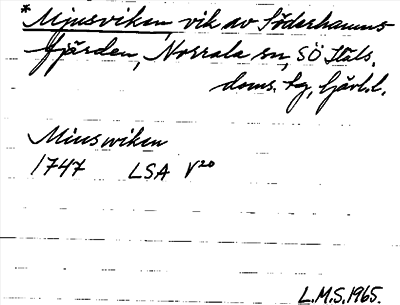 *Mjusviken, vik av Söderhamns-
fjärden, Norrala sn, SÖ Häls.
doms. tg, Gävl.l.
Miuswiken
1747 LSA V20
L.M.S. 1965.